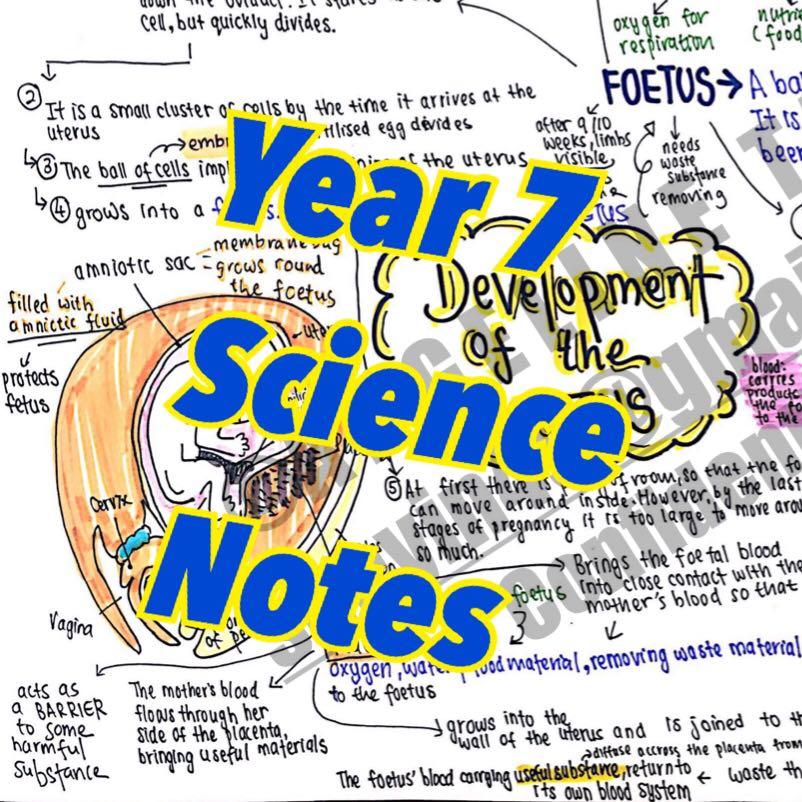 cell, but quickly divides.
oxygen for
respiration
FOETUS → A
It is
been
② It is a small cluster of cells by the time it arrives at the
uterus
egg divides
③ The ball of cells
of the uterus
④ grows into a
after 9/10
weeks, limbs
visible
needs
waste
substance
removing
Year 7
Science
Notes
amniotic sac =
membrane
grows round
the foetus
filled with
amnictic fluid
protects
fetus
Development
of the
blood:
carries
products
the
to the
cervix
Vagina
⑤ At first there is
room, so that the
can move around inside. However, by the last
stages of pregnancy it is too large to move
so much.
Brings the foetal blood
foetus
into close contact with the
mother's blood so that
oxygen,
food material, removing waste material
to the foetus
acts as
a BARRIER
to some
harmful
substance
The mother's blood
flows through her
side of the placenta,
bringing useful materials
grows into the
wall of the uterus and is joined to
diffuse accross the placenta from
The foetus' blood carrying useful substance, return to
its own blood system
waste